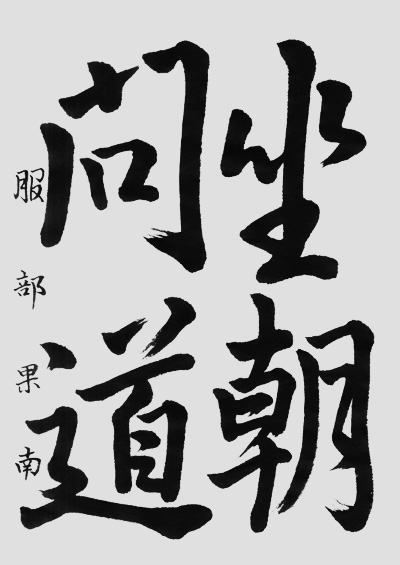 坐朝
問道
服部果南